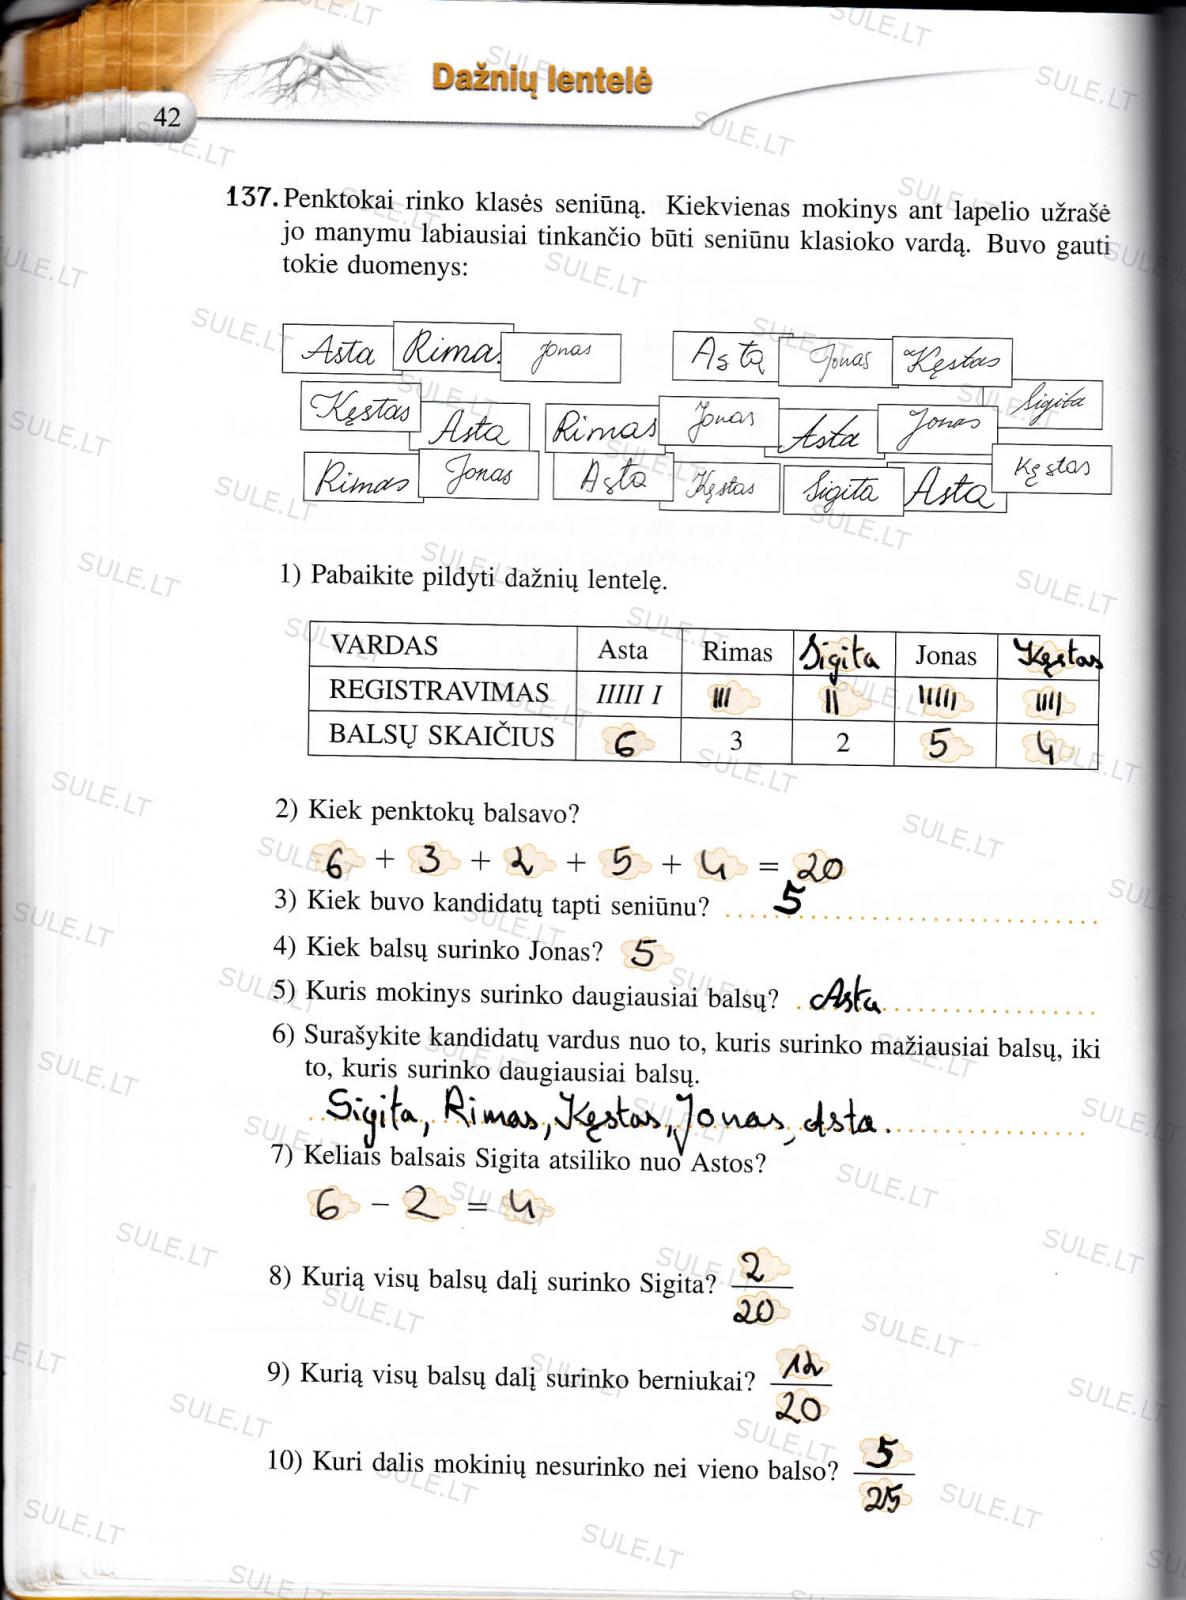 Dažnių lentelė
42
137. Penktokai rinko klasės seniūną. Kiekvienas mokinys ant lapelio užrašė
jo manymu labiausiai tinkančio būti seniūnu klasioko vardą. Buvo gauti
tokie duomenys:
Asta Rimas Jonas Asta Jonas Kęstas
Kęstas Asta Rimas Jonas Asta Jonas Sigita
Rimas Jonas Asta Kęstas Sigita Asta Kęstas
1) Pabaikite pildyti dažnių lentelę.
VARDAS Asta Rimas Sigita Jonas Kęstas
REGISTRAVIMAS IIIII I III II IIIII IIII
BALSŲ SKAIČIUS 6 3 2 5 4
2) Kiek penktokų balsavo?
6 + 3 + 2 + 5 + 4 = 20
3) Kiek buvo kandidatų tapti seniūnu? 5
4) Kiek balsų surinko Jonas? 5
5) Kuris mokinys surinko daugiausiai balsų? Asta
6) Surašykite kandidatų vardus nuo to, kuris surinko mažiausiai balsų, iki
to, kuris surinko daugiausiai balsų.
Sigita, Rimas, Kęstas, Jonas, Asta.
7) Keliais balsais Sigita atsiliko nuo Astos?
6 − 2 = 4
8) Kurią visų balsų dalį surinko Sigita? 2/20
9) Kurią visų balsų dalį surinko berniukai? 12/20
10) Kuri dalis mokinių nesurinko nei vieno balso? 5/25
SULE.LT